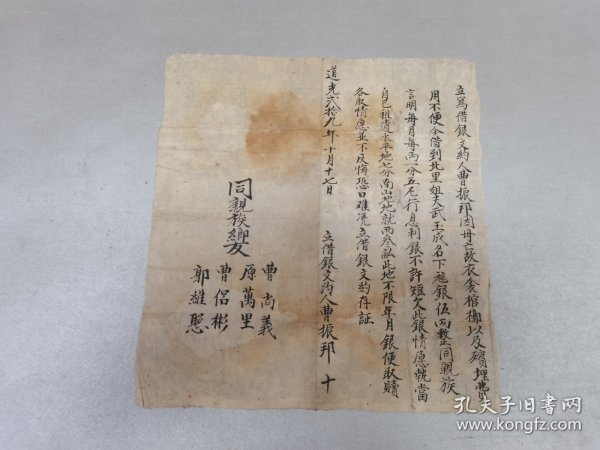 立寫借銀文約人曹振邦因母亡故衣食棺槨以及殯埋費
用不便今借到北里姐夫武玉成名下艇銀伍両整同親族
言明每月每両一分五厘行息利銀不許短欠此銀情愿當
自己祖遺水平地七分南山地地就両叁畝此地不限年月銀便取贖
各取情愿並不反悔恐口難凭立借銀文約存証
道光貳拾九年十月十七日 立借銀文約人曹振邦 十
同親族鄉友
曹尚義
原萬里
曹侶彬
郭維愿
孔夫子旧书网
www.kongfz.com